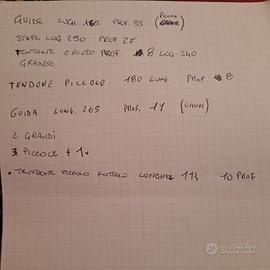 GUIDE LUGH. 165 PROF. 33 (PICCOLE
STAFE LUG 250 PROF 27
TENTONE CHIUSO PROF. 8 LUG-240
GRANDE
TENDONE PICCOLO 180 LUNG. PROF 8
GUIDA LUNG. 265 PROF. 17 (GRANDE)
2 GRANDI
3 PICCOLE + 1
• TENDONE PICCOLO ROTTOLO LUNGHEZ 113 10 PROF
subito